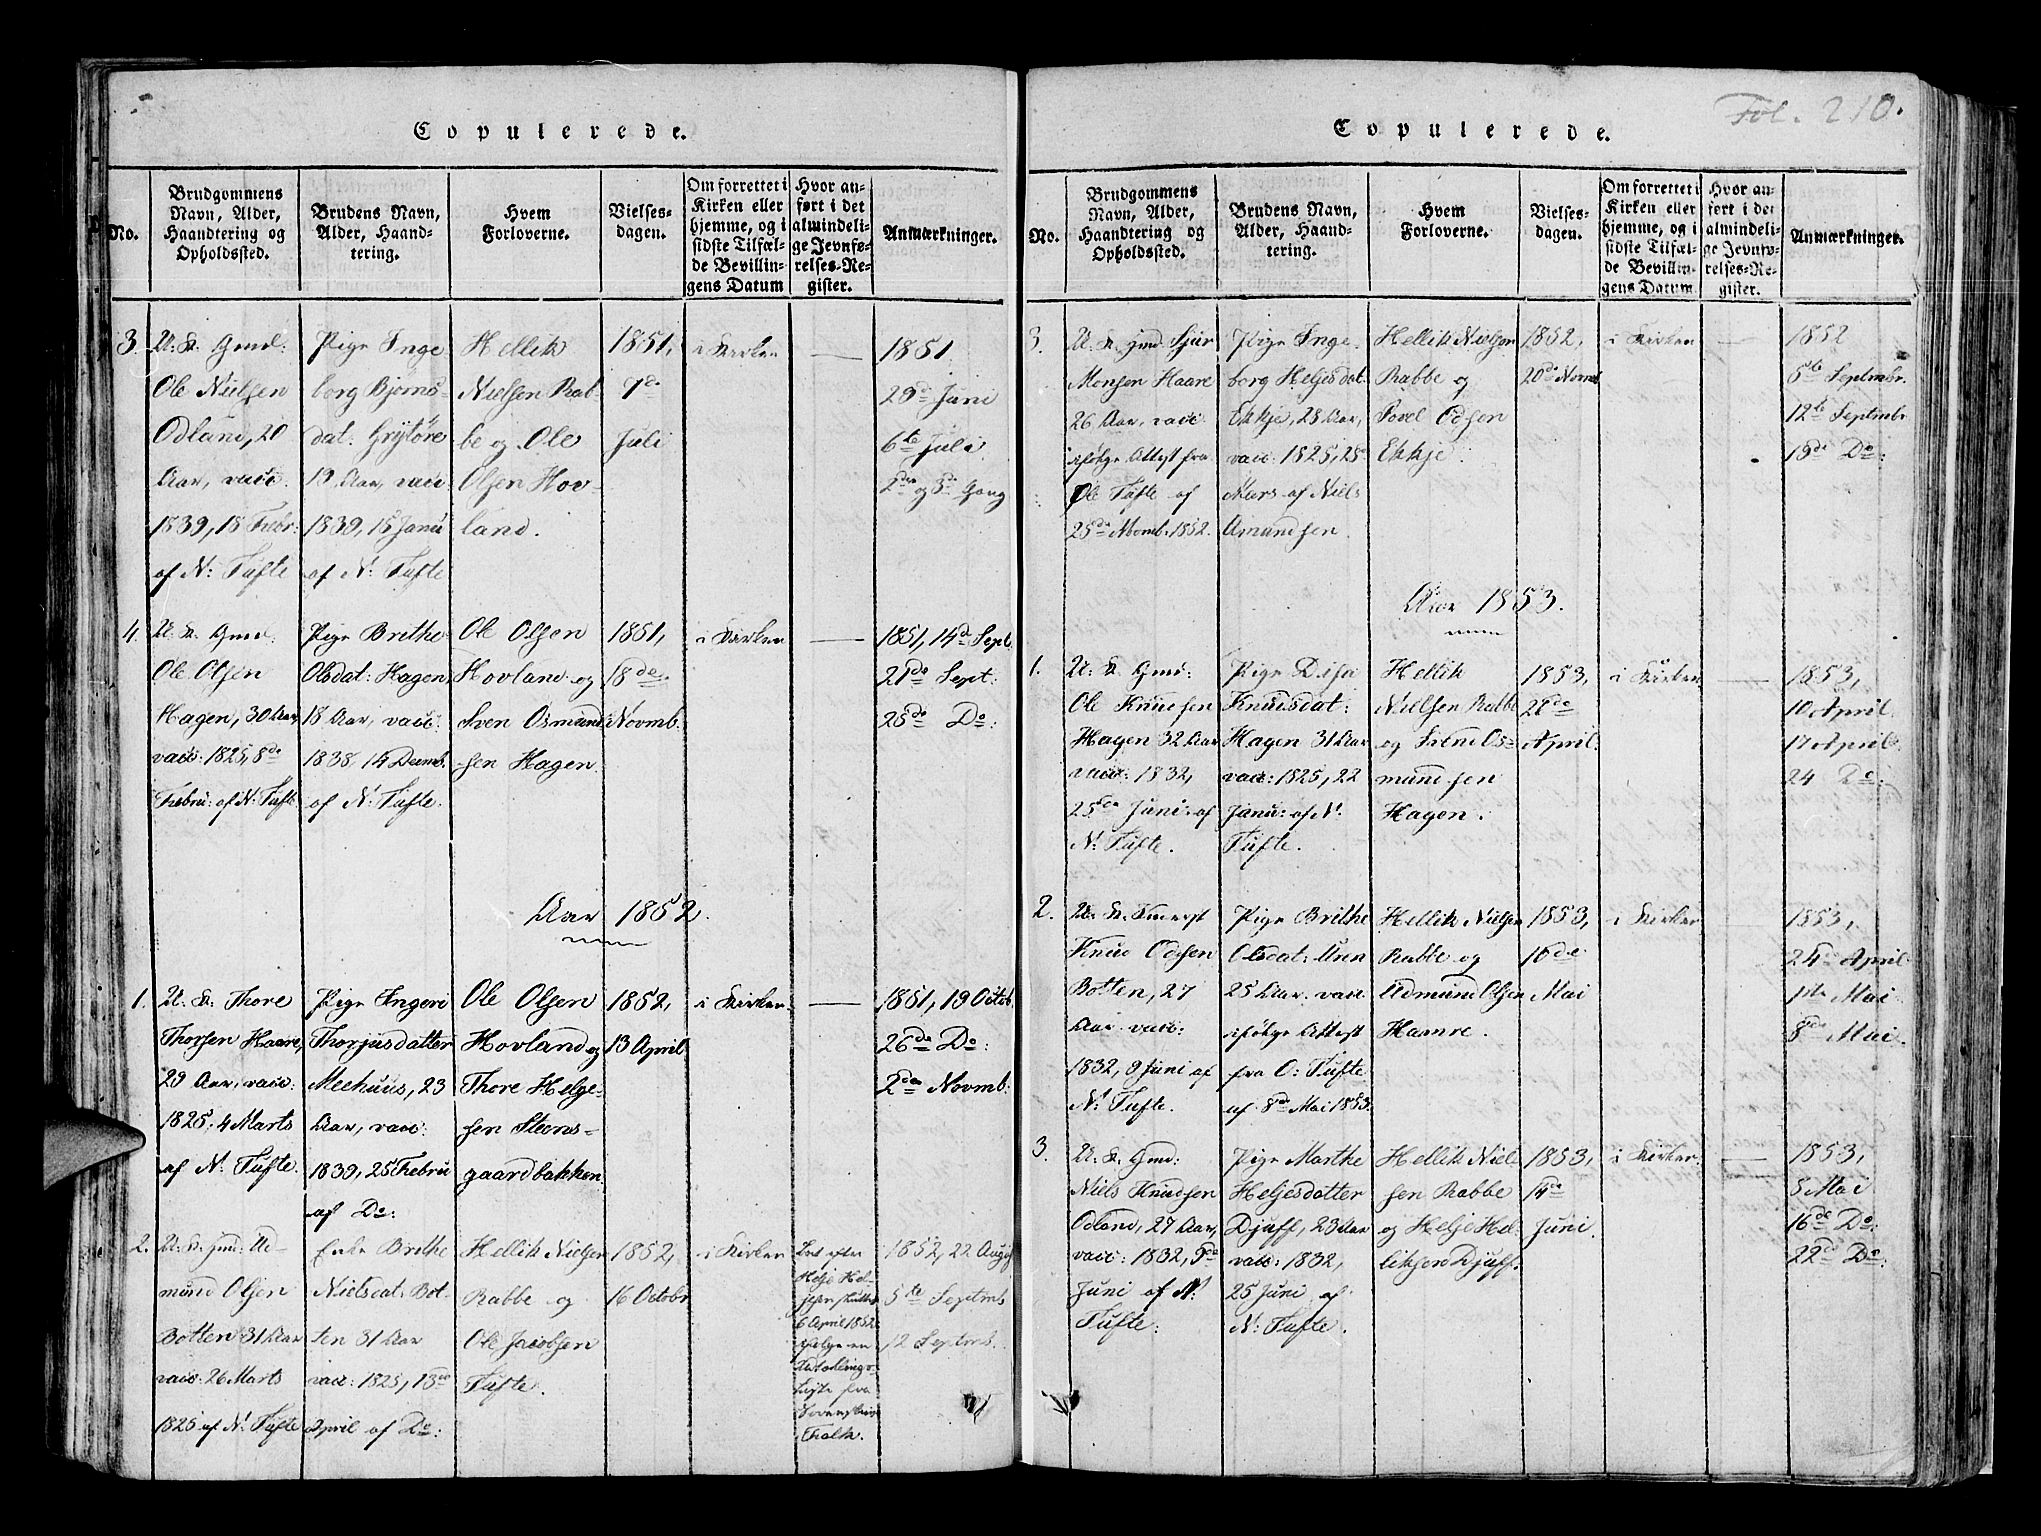 Fol. 210.
Copulerede.
No.
Brudgommens
Navn, Alder,
Haandtering og
Opholdssted.
Brudens Navn,
Alder, Haand-
tering.
Hvem
Forloverne.
Vielses-
dagen.
Om forrettet i
Kirken eller
hjemme, og i
sidste Tilfæl-
de Bevillin-
gens Datum
Hvor an-
ført i det
almindeli-
ge Jevnfø-
relses-Re-
gister.
Anmærkninger.
3.
U. K. Gmd:
Ole Nielsen
Odland, 20
Aar, vacc.
1839, 18 Febr:
af N: Tufte
Pige Inge
borg Bjørns-
dat: Grytøre
19 Aar, vacc
1839, 15 Janu
af N: Tufte
Hellik
Nielsen Rab-
be og Ole
Olsen Hov-
land.
1851,
7de
Juli
i Kirken
1851
29de Juni
6te Juli
2den og 3die Gang
4.
U. K. Gmd.
Ole Olsen
Hagen, 30 Aar,
vacc: 1825, 8de
Febru: af N: Tufte
Pige Brithe
Olsdat: Hagen,
18 Aar, vacc:
1838 14 Decmb.
af N: Tufte.
Ole Olsen
Hovland og
Sven Osmund
sen Hagen.
1851,
18de
Novmb.
i Kirken
1851, 14de Sept.
21de Sept:
25de Do:
Aar 1852.
1.
U. K. Thore
Thorsen Haare,
29 Aar, vacc:
1825, 4 Marts
af N: Tufte.
Pige Ingeri
Thorjusdatter
Meehuus, 23
Aar, vacc:
1839, 25 Febru
af Do:
Ole Olsen
Hovland og
Thore Helge-
sen Steens-
gaardbakken.
1852,
13 April
i Kirken.
1851, 19 Octob.
26de Do:
2den Novmb:
2.
U. K. gmd: Ad-
mund Olsen
Botten 31 Aar
vacc: 26 Marts
1825 af N: Tufte
Enke Brithe
Nielsdat: Bot-
ten 31 Aar
vacc: 1825, 13de
April af Do:
Hellik Nielsen
Rabbe og
Ole Jacobsen
Tufte.
1852,
16 Octobr
i Kirken
efter
Helje Hel-
6 April 1852
fra
Falk.
1852, 22 Aug
5te Septmb
12 Septmb.
Copulerede.
No.
Brudgommens
Navn, Alder,
Haandtering og
Opholdssted.
Brudens Navn,
Alder, Haand-
tering.
Hvem
Forloverne.
Vielses-
dagen.
Om forrettet i
Kirken eller
hjemme, og i
sidste Tilfæl-
de Bevillin-
gens Datum
Hvor an-
ført i det
almindeli-
ge Jevnfø-
relses-Re-
gister.
Anmærkninger.
3.
U. K. gmd. Sjur
Monsen Haare
26 Aar, vacc:
ifølge Attest fra
Ole Tufte af
25de Novmb: 1852.
Pige Inge-
borg Heljesdat.
Ekkje, 28 Aar,
vacc: 1825, 25
Mars af Niels
Amundsen.
Hellik Nielsen
Rabbe og
Povel Odsen
Ekkje.
1852,
20de Novmb
i Kirken
1852
5te Septmbr.
12te Septmbr
19de Do:
Aar 1853.
1.
U. K. Gmd:
Ole Knudsen
Hagen 32 Aar
vacc: 1832,
25de Juni af
N: Tufte.
Pige Disa
Knudsdat:
Hagen 31 Aar
vacc: 1825, 22
Janu: af N:
Tufte.
Hellik
Nielsen Rabbe
og Svend Os-
mundsen
Hagen.
1853,
28de
April.
i Kirken
1853,
10 April.
17 April.
24 Do:
2.
U. K.
Knud Odsen
Botten, 27
Aar. vacc:
1832, 9 Juni af
N: Tufte.
Pige Brithe
Olsdat: Unn
25 Aar. vacc
ifølge Attest
fra O: Tufte
af 8de Mai 1853.
Hellik Nielsen
Rabbe og
Admund Olsen
Haanre.
1853,
10de
Mai
i Kirken
1853,
24de April
1ste Mai
8de Mai.
3.
U. K. Gmd:
Niels Knudsen
Odland, 27 Aar,
vacc: 1832, 9de
Juni af N:
Tufte:
Pige Marthe
Heljesdatter
Djuff, 23 Aar
vacc: 1832,
25 Juni af
N: Tufte.
Hellik Niel
sen Rabbe
og Helje Hel-
liksen Djuff.
1853,
14de
Juni.
i Kirken.
1853,
5 Mai
16de Do:
22de Do: